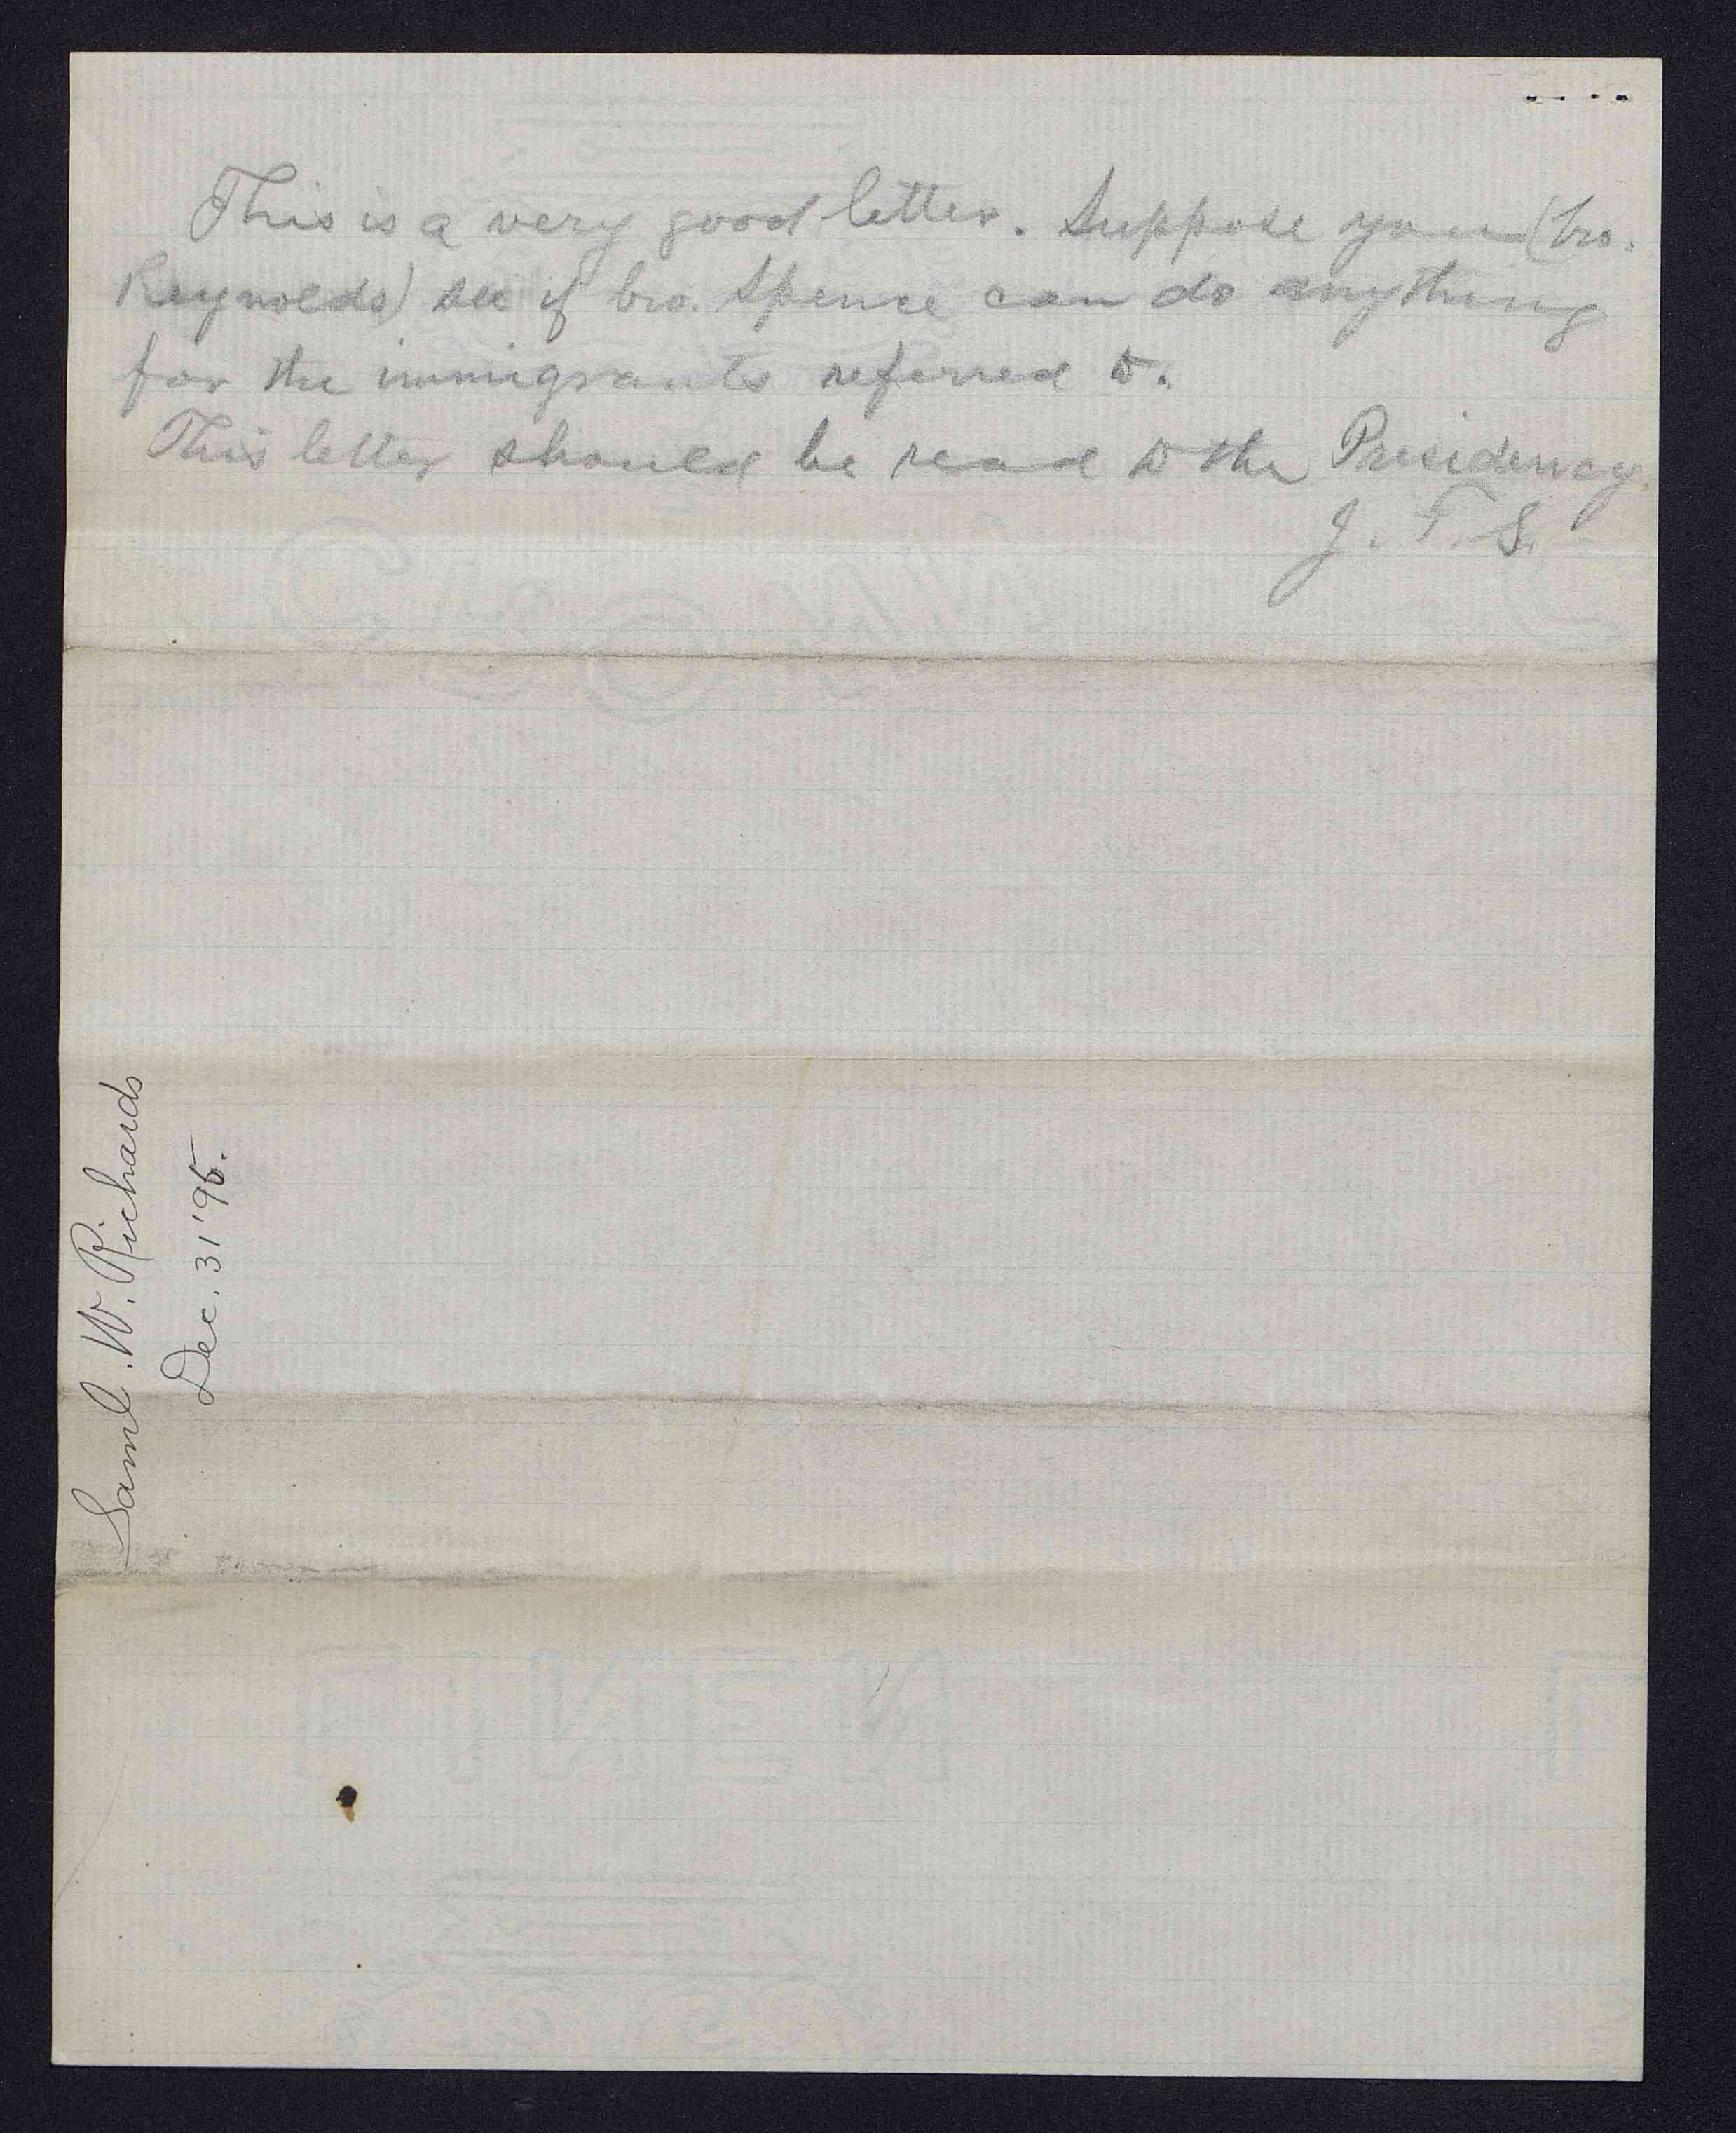 This is a very good letter. Suppose you (bro.
Reynolds) see if bro. Spence can do anything
for the immigrants referred to.
This letter should be read to the Presidency.
J. F. S.
Saml. W. Richards
Dec. 31 '95.